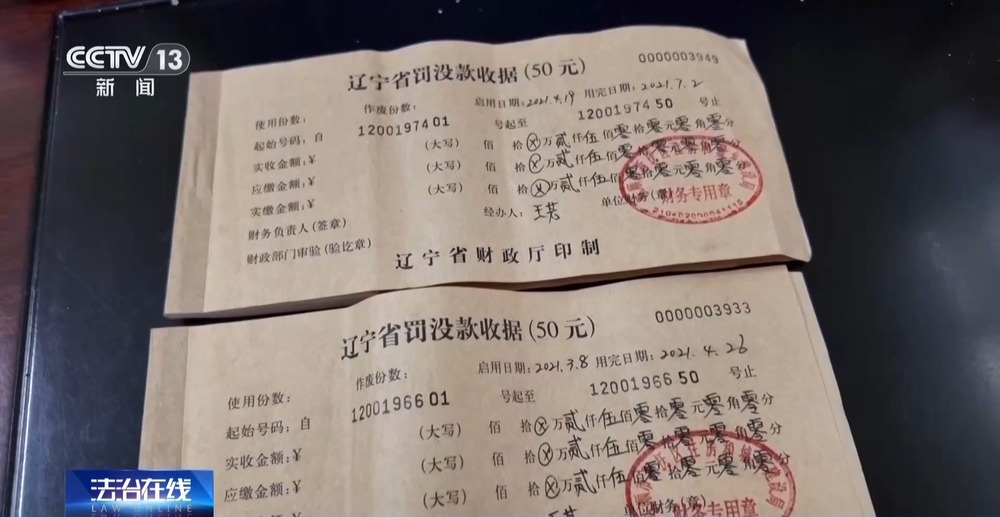 CCTV 13
新闻
辽宁省罚没款收据(50元)
0000003949
使用份数:
作废份数:
启用日期:2021.4.19 用完日期:2021.7.2
起始号码:自 1200197401 号起至 1200197450 号止
实收金额:¥ (大写) 佰 拾ⓧ万贰仟伍佰零拾零元零角零分
应缴金额:¥ (大写) 佰 拾ⓧ万贰仟伍佰零拾零元零角零分
实缴金额:¥ (大写) 佰 拾ⓧ万贰仟伍佰零拾零元零角零分
财务负责人(签章) 经办人: 单位财务(章)
财务专用章
财政部门审验(验讫章)
辽宁省财政厅印制
辽宁省罚没款收据(50元)
0000003933
使用份数:
作废份数:
启用日期:2021.3.8 用完日期:2021.4.26
起始号码:自 1200196601 号起至 1200196650 号止
实收金额:¥ (大写) 佰 拾ⓧ万贰仟伍佰零拾零元零角零分
应缴金额:¥ (大写) 佰 拾ⓧ万贰仟伍佰零拾零元零角零分
(大写) 佰 拾ⓧ万贰仟伍佰零拾零元零角零分
单位财务(章)
财务专用章
法治在线
LAW ONLINE